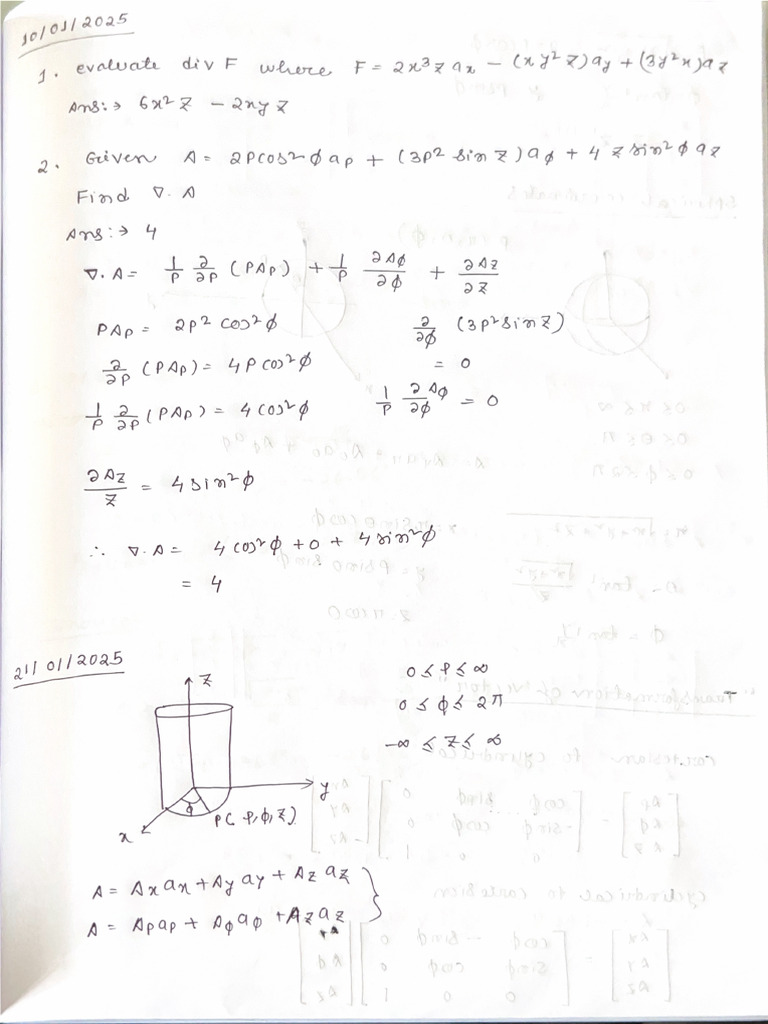 10/01/2025
1. evaluate div F where F = 2x³z ax − (xy²z)ay + (3y²x)az
Ans:→ 6x²z − 2xyz
2. Given A = 2ρcos²ϕ aρ + (3ρ² sin z)aϕ + 4 z sin²ϕ az
Find ∇. A
Ans:→ 4
∇. A = 1/ρ ∂/∂ρ (ρAρ) + 1/ρ ∂Aϕ/∂ϕ + ∂Az/∂z
ρAρ = 2ρ² cos²ϕ
∂/∂ϕ (3ρ² sin z)
∂/∂ρ (ρAρ) = 4ρ cos²ϕ
= 0
1/ρ ∂/∂ρ (ρAρ) = 4 cos²ϕ
1/ρ ∂Aϕ/∂ϕ = 0
∂Az/z = 4 sin²ϕ
∴ ∇. A = 4 cos²ϕ + 0 + 4 sin²ϕ
= 4
21/01/2025
z
0 ≤ ρ ≤ ∞
0 ≤ ϕ ≤ 2π
−∞ ≤ z ≤ ∞
y
ϕ
P(ρ,ϕ,z)
x
A = Ax ax + Ay ay + Az az
A = Aρ aρ + Aϕ aϕ + Az az